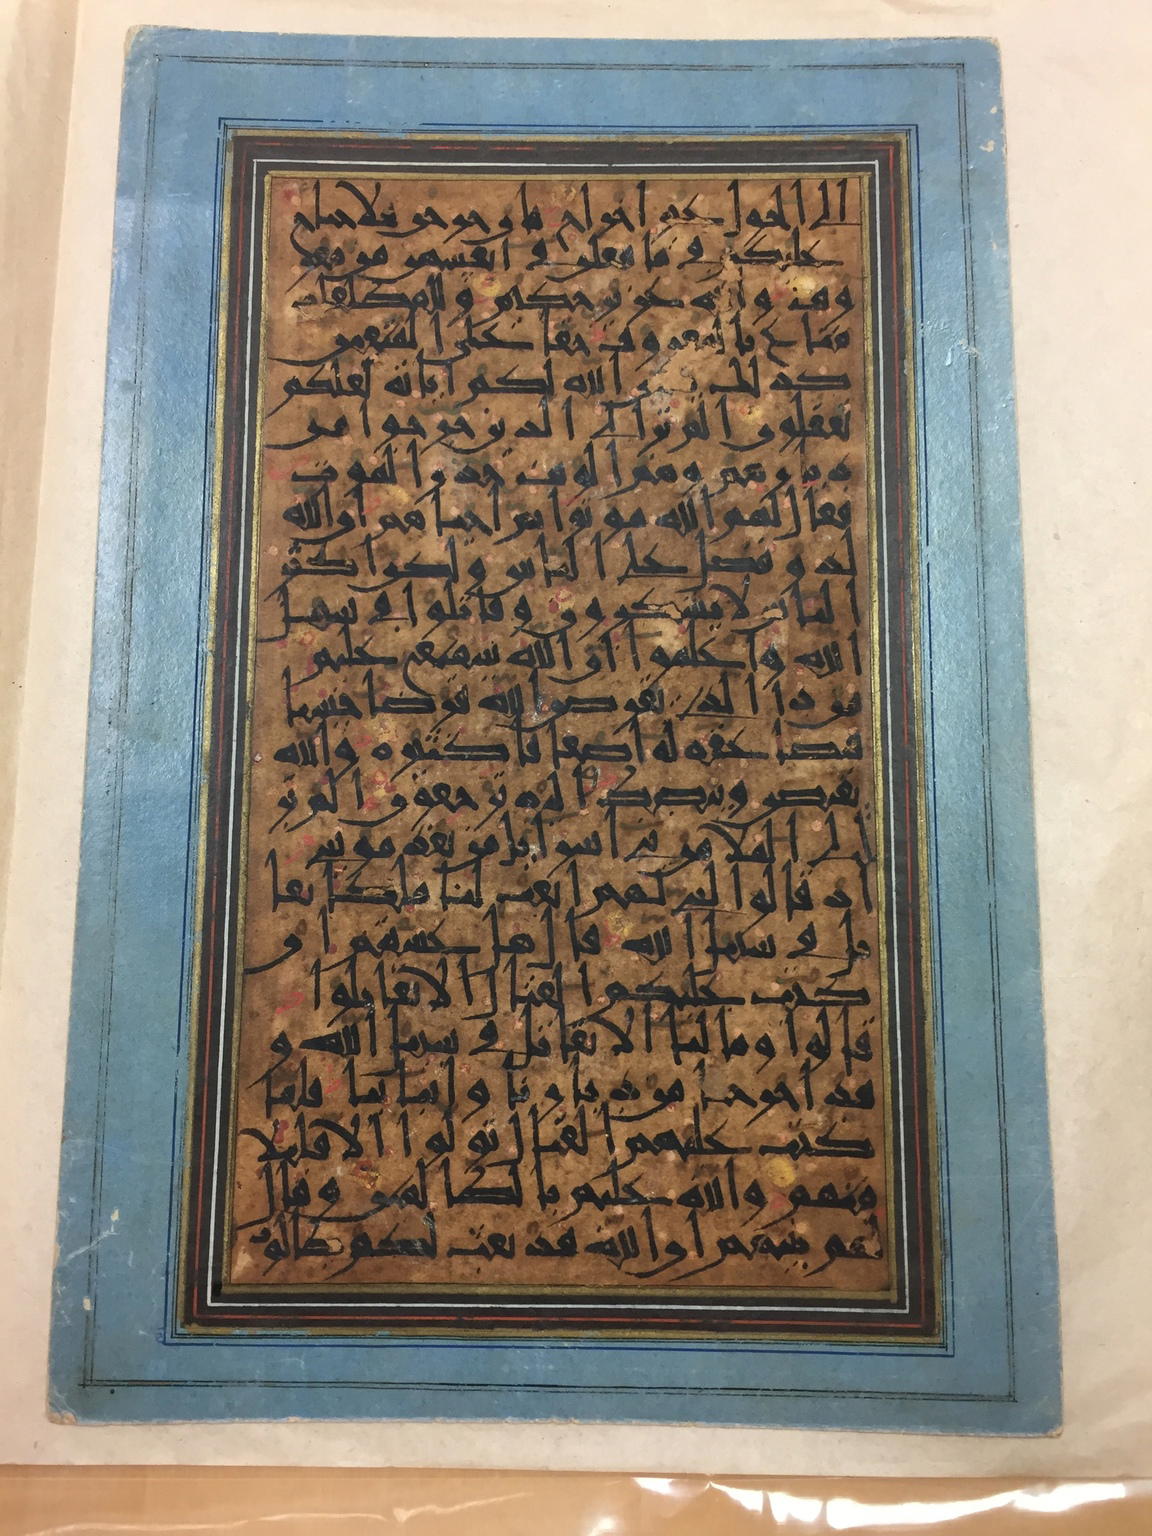 الى الحول غير اخراج فان خرجن فلا جناح
عليكم في ما فعلن في انفسهن من معر
وف والله عزيز حكيم وللمطلقات
متاع بالمعروف حقا على المتقين
كذلك يبين الله لكم اياته لعلكم
تعقلون الم تر الى الذين خرجوا من
ديرهم وهم الوف حذر الموت
فقال لهم الله موتوا ثم احياهم ان الله
لذو فضل على الناس ولكن اكثر
الناس لا يشكرون وقاتلوا في سبيل
الله واعلموا ان الله سميع عليم
من ذا الذي يقرض الله قرضا حسنا
فيضاعفه له اضعافا كثيره والله
يقبض ويبصط واليه ترجعون الم تر
الى الملا من بني اسرايل من بعد موسى
اذ قالوا لنبي لهم ابعث لنا ملكا نقا
تل في سبيل الله قال هل عسيتم ان
كتب عليكم القتال الا تقاتلوا
قالوا وما لنا الا نقاتل في سبيل الله و
قد اخرجنا من ديارنا وابناينا فلما
كتب عليهم القتال تولوا الا قليلا
منهم والله عليم بالظالمين وقال
لهم نبيهم ان الله قد بعث لكم طالوت